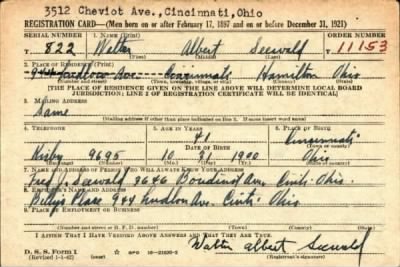 3512 Cheviot Ave., Cincinnati, Ohio
REGISTRATION CARD—(Men born on or after February 17, 1897 and on or before December 31, 1921)
SERIAL NUMBER 1. NAME (Print) ORDER NUMBER
T 822 Walter Albert Seewald 11153
(First) (Middle) (Last)
2. PLACE OF RESIDENCE (Print)
944 Ludlow Ave. Cincinnati Hamilton Ohio
(Number and street) (Town, township, village, or city) (County) (State)
[THE PLACE OF RESIDENCE GIVEN ON THE LINE ABOVE WILL DETERMINE LOCAL BOARD
JURISDICTION; LINE 2 OF REGISTRATION CERTIFICATE WILL BE IDENTICAL]
3. MAILING ADDRESS
Same
(Mailing address if other than place indicated on line 2. If same insert word same)
4. TELEPHONE 5. AGE IN YEARS 6. PLACE OF BIRTH
41 Cincinnati
DATE OF BIRTH (Town or county)
Kirby 9695 10 31 1900 Ohio
(Exchange) (Number) (Mo.) (Day) (Yr.) (State or country)
7. NAME AND ADDRESS OF PERSON WHO WILL ALWAYS KNOW YOUR ADDRESS
Seewald 3646 Boudinot Ave. Cinti. Ohio.
8. EMPLOYER'S NAME AND ADDRESS
Place 944 Ludlow Ave. Cinti. Ohio.
9. PLACE OF EMPLOYMENT OR BUSINESS
(Number and street or R. F. D. number) (Town) (County) (State)
I AFFIRM THAT I HAVE VERIFIED ABOVE ANSWERS AND THAT THEY ARE TRUE.
D. S. S. Form 1 Walter Albert Seewald
(Revised 1-1-42) (Registrant's signature)